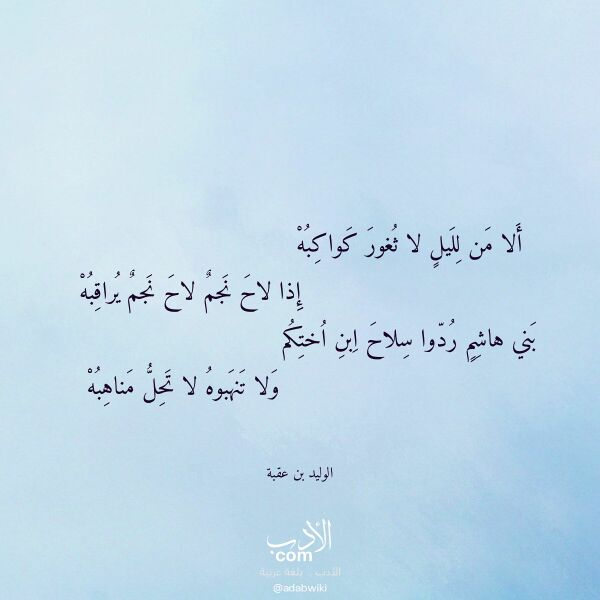 أَلا مَن لِلَيلٍ لا ثُغورَ كَواكِبُهْ
إِذا لاحَ نَجمٌ لاحَ نَجمٌ يُراقِبُهْ
بَني هاشِمٍ رُدّوا سِلاحَ اِبنِ اُختِكُم
وَلا تَنهَبوهُ لا تَحِلُّ مَناهِبُهْ
الوليد بن عقبة
الأدب
com
الأدب .. بلغة عربية
@adabwiki